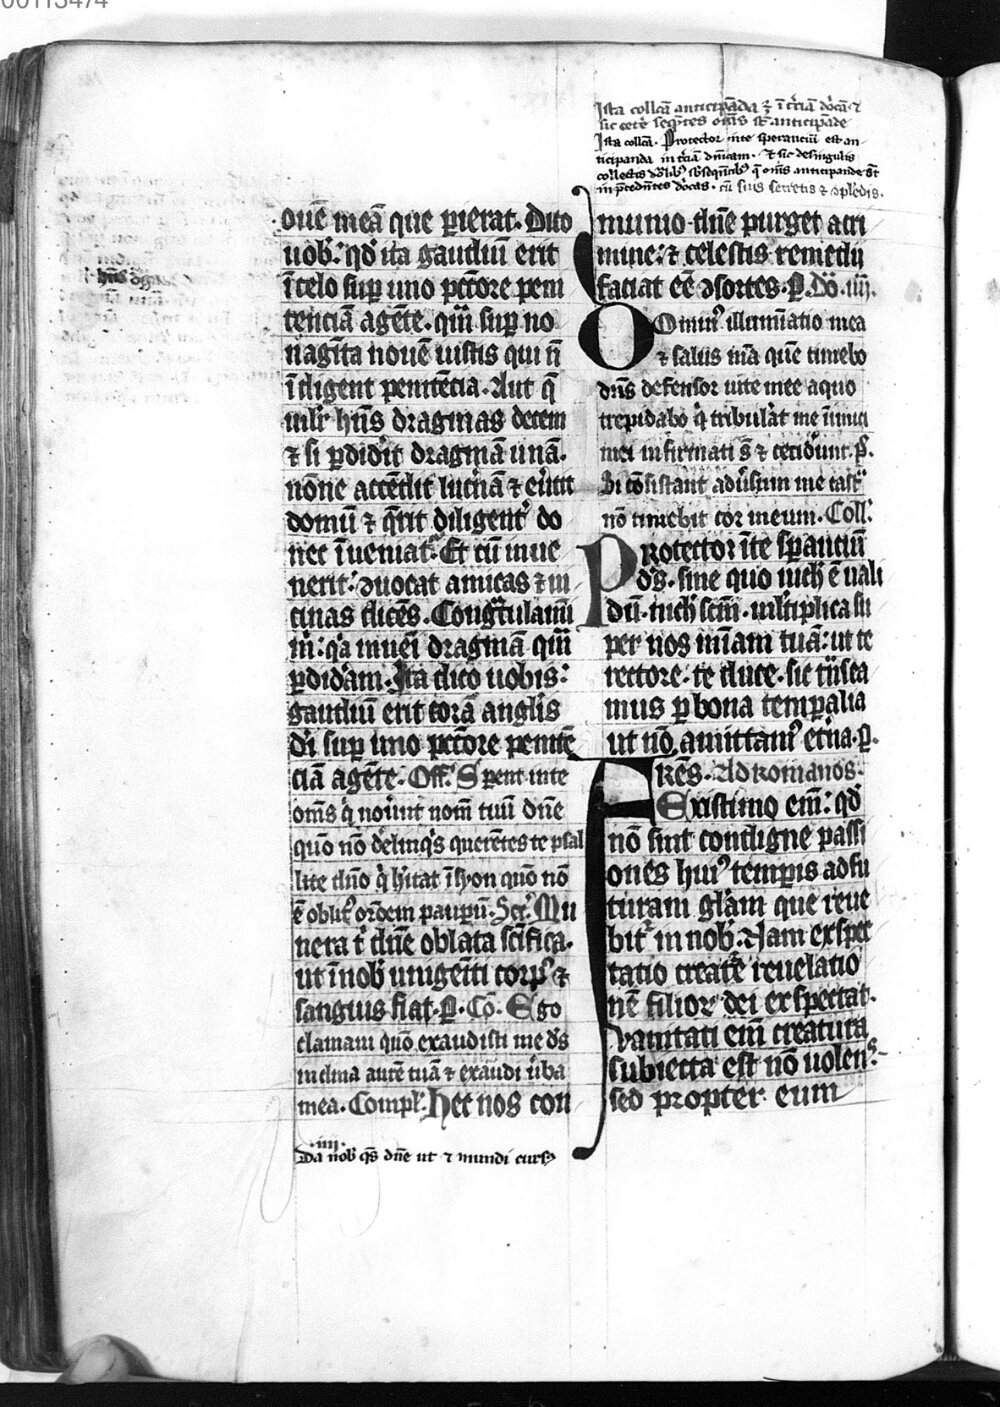 00113474
Ista collcā anticipāda ⁊ ī t̄ciā dōcā ⁊
sic cete᷒ seq̄ntes om̄s st̄ anticipāde
Ista collcā. Protector in te sperancium est an-
ticipanda in t̄ciam dn̄icam. Et sic de singulis
collectis
in p̄cedn̄tes dōcas. cū suis secretis ⁊ ꝯplēdis.
ouē meā que pierat. Dico
uob̄. qd̄ ita gaudiū erit
ī celo suꝑ uno pctōre peni
tenciā agēte. qm̄ suꝑ no
nagīta nouē iustis qui n̄
īdigent penitēcia. Aut q̄
mlr̄ hn̄s dragmas decem
⁊ si ꝑdidit dragmā unā.
nōne accēdit lucnā ⁊ eūtit
domū ⁊ q̄rit diligent᷒ do
nec īueniat. Et cū inue
nerit. ꝯuocat amicas ⁊ ui
cinas dicēs. Congͣtulamī
m̄. qͥa inuēi dragmā quā
ꝑdidam. Ita dico uobis.
gaudiū erit corā angl̄is
dī suꝑ uno pctōre penitē
ciā agēte. Off. Sperent in te
om̄s qͥ nouūt nom̄ tuū dn̄e
qm̄ nō delinqͥs querētes te psal
lite dn̄o qͥ hītat ī syon qm̄ nō
ē oblit᷒ orōem paupū. Scr̄. Mu
nera t̄ dn̄e oblata sc̄ifica.
ut ī nob̄ unigeīti corp᷒ ⁊
sanguis fiat. P. Cō. Ego
clamaui qm̄ exaudisti me d̄s
inclina aurē tuā ⁊ exaudi ūba
mea. Compl̄. Hec nos con
.iiii.
Da nob̄ qs̄ dn̄e ut ⁊ mundi curs᷒
hn̄s
munio dn̄e purget a cri
mine. ⁊ celestis remedii
faciat eē ꝯsortes. P. Dō. iiii.
Domin᷒ illuminatio mea
⁊ salus mā quē timebo
dn̄s defensor uite mee a quo
trepidabo qͥ tribulāt me inimici
mei infirmati s̄ ⁊ ceciderūt. P̄s.
Si cōsistant aduersum me castͣ
nō timebit cor meum. Coll̄.
Protector ī te sꝑanciū
d̄s. sine quo nich̄ ē uali
dū. nich̄ sc̄m. multiplica su
per nos miām tuā. ut te
rectore. te duce. sic tn̄sea
mus ꝑ bona temꝑalia
ut nō amittam᷒ et̄na. P.
Fr̄es. Ad Romanos.
Existimo em̄. qd̄
nō sunt condigne passi
ones hui᷒ temꝑis ad fu
turam glām que reue
bit᷒ in nob̄. Nam exspec
tatio creatē reuelatio
nē filior̄ dei exspectat.
Vanitati em̄ creatura
subiecta est nō uolens.
sed propter eum